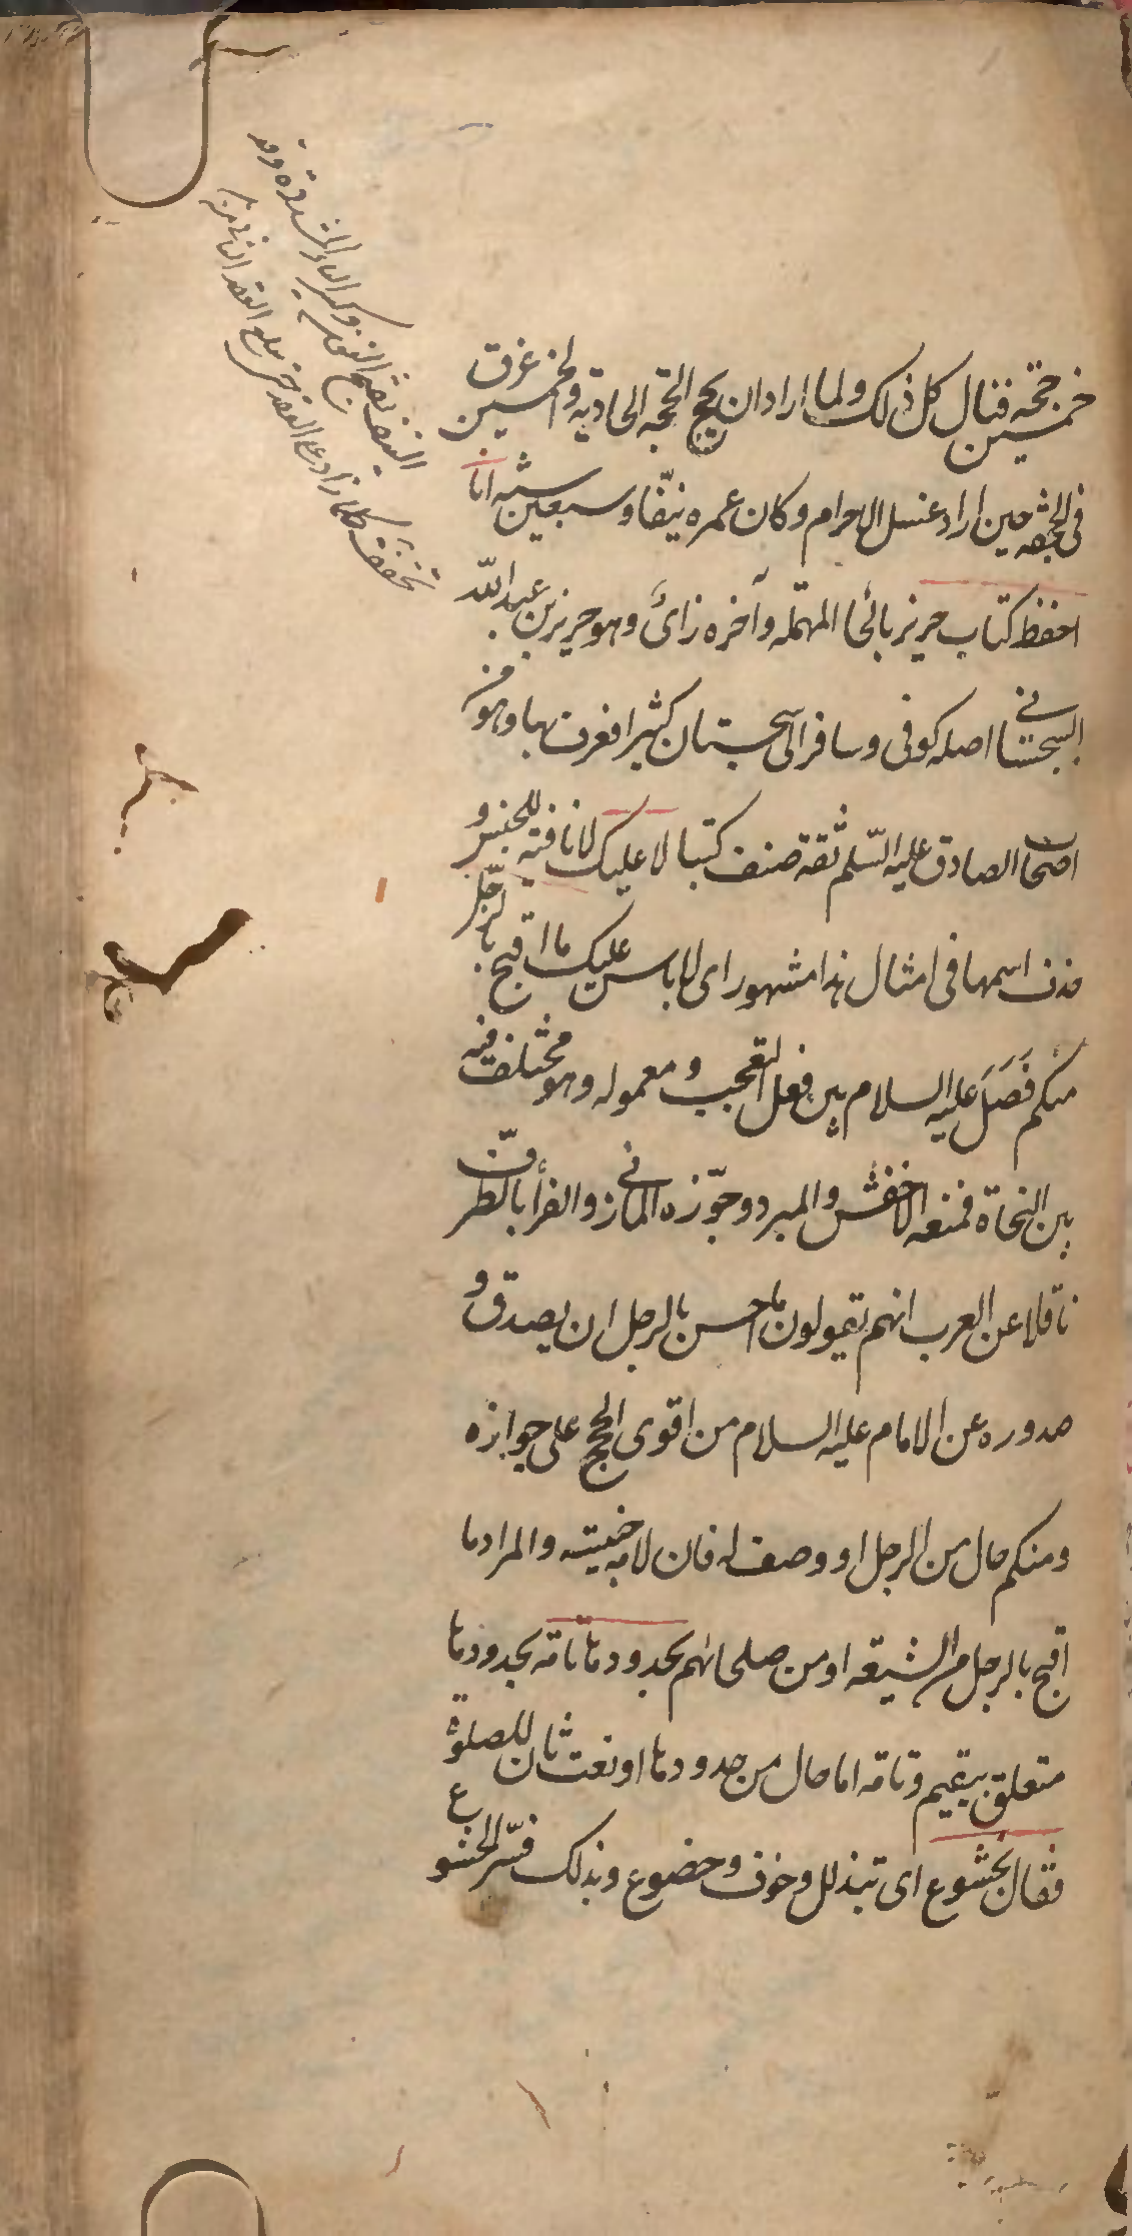 خمسين حجة فنال كل ذلك ولما اراد ان يحج الحجة الحادية والخمسين غرق
فى الجحفه حين اراد غسل الاحرام وكان عمره نيّفا وسبعين سنة انا
احفظ كتاب حريز بالحا المهمله وآخره زائ وهو حريز بن عبد اللّه
السجستانى اصله كوفى وسافر الى سجستان كثيرا فعرف بها وهو من
اصحاب الصادق عليه السّلم ثقة صنف كتبا لا عليك لا نافية للجنس و
حذف اسمها فى امثال هذا مشهور اى لا باس عليك ما اقبح بالرّجل
منكم فَصَلَ عليه السلام بين فعل التعجب ومعموله وهو مختلف فيه
بين النحاة فمنعه الاخفش والمبرد وجوّزه المازنى والفرأ بالظرف
ناقلا عن العرب انهم يقولون ما احسن بالرجل ان يصدق و
صدوره عن الامام عليه السلام من اقوى الحجج على جوازه
ومنكم حال من الرجل او وصف له فان لامه جنسية والمراد ما
اقبح بالرجل من الشيعه او من صلحائهم بحدودها تامة بحدودها
متعلق بيقيم وتامة اما حال من حدودها او نعت ثان للصلوة
فقال بخشوع اى تبذلل وخوف وخضوع وبذلك فسّر الخشوع
النيف بفتح النون وكسر الياء المشددة وقد
تخفف كلما زاد على العقد حتى يبلغ العقد الثانى